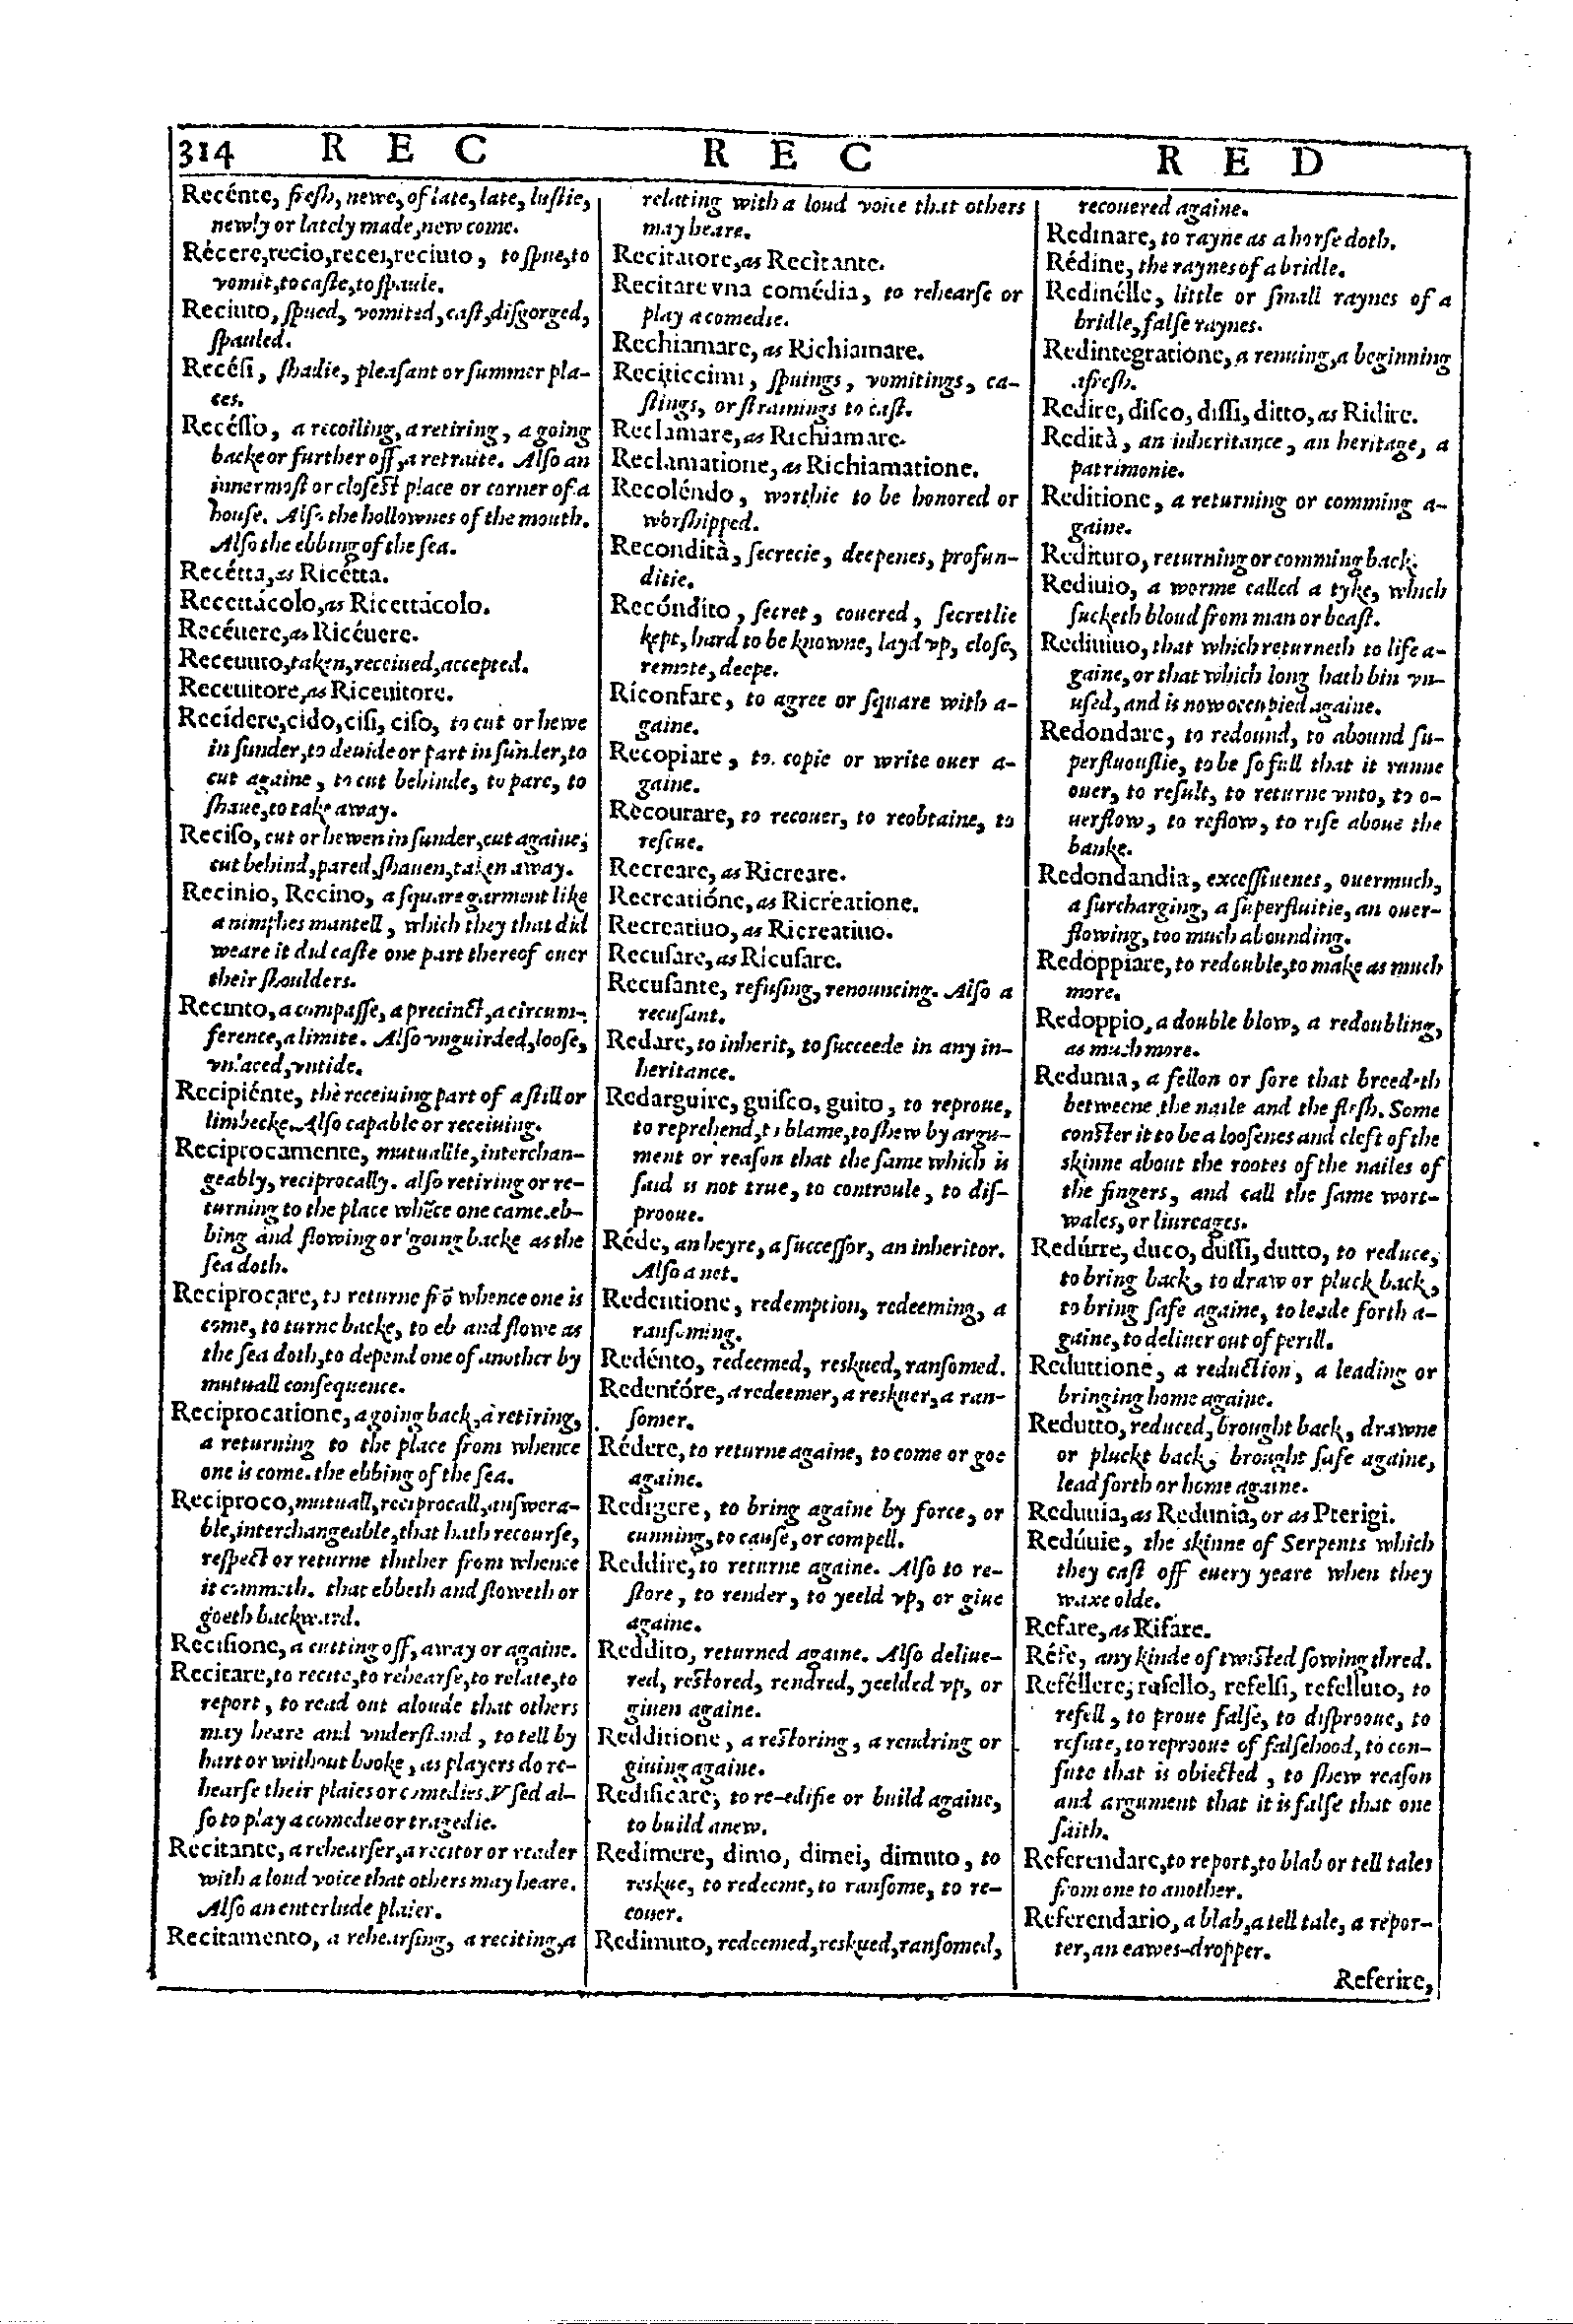 314 R E C R E C R E D
Recénte, freſh, newe, of late, late, luſtie,
newly or lately made, new come.
Récere, recio, recei, reciuto, to ſpue, to
vomit, to caſte, to ſpaule.
Reciuto, ſpued, vomited, caſt, diſgorged,
ſpauled.
Recéſi, ſhadie, pleaſant or ſummer pla-
ces.
Recéſſo, a recoiling, a retiring, a going
backe or further off, a retraite. Alſo an
innermoſt or cloſeſt place or corner of a
houſe. Alſo the hollownes of the mouth.
Alſo the ebbing of the ſea.
Recétta, as Ricétta.
Recettácolo, as Ricettácolo.
Recéuere, as Ricéuere.
Receuuto, taken, receiued, accepted.
Receuitore, as Riceuitore.
Recídere, cido, ciſi, ciſo, to cut or hewe
in ſunder, to deuide or part in ſunder, to
cut againe, to cut behinde, to pare, to
ſhaue, to take away.
Reciſo, cut or hewen in ſunder, cut againe,
cut behind, pared, ſhauen, taken away.
Recinio, Recino, a ſquare garment like
a nimphes mantell, which they that did
weare it did caſte one part thereof ouer
their ſhoulders.
Recinto, a compaſſe, a precinct, a circum-
ference, a limite. Alſo vnguirded, looſe,
vnlaced, vntide.
Recipiénte, the receiuing part of a ſtill or
limbecke. Alſo capable or receiuing.
Reciprocamente, mutuallie, interchan-
geably, reciprocally. alſo retiring or re-
turning to the place whēce one came. eb-
bing and flowing or going backe as the
ſea doth.
Reciprocare, to returne frō whence one is
come, to turne backe, to eb and flowe as
the ſea doth, to depend one of another by
mutuall conſequence.
Reciprocatione, a going back, a retiring,
a returning to the place from whence
one is come. the ebbing of the ſea.
Reciproco, mutuall, reciprocall, anſwera-
ble, interchangeable, that hath recourſe,
reſpect or returne thither from whence
it commeth. that ebbeth and floweth or
goeth backward.
Reciſione, a cutting off, away or againe.
Recitare, to recite, to rehearſe, to relate, to
report, to read out aloude that others
may heare and vnderſtand, to tell by
hart or without booke, as players do re-
hearſe their plaies or comedies. Vſed al-
ſo to play a comedie or tragedie.
Recitante, a rehearſer, a recitor or reader
with a loud voice that others may heare.
Alſo an enterlude plaier.
Recitamento, a rehearſing, a reciting, a
relating with a loud voice that others
may heare.
Recitatore, as Recitante.
Recitare vna comédia, to rehearſe or
play a comedie.
Rechiamare, as Richiamare.
Reciticcimi, ſpuings, vomitings, ca-
ſtings, or ſtrainings to caſt.
Reclamare, as Richiamare.
Reclamatione, as Richiamatione.
Recoléndo, worthie to be honored or
worſhipped.
Recondità, ſecrecie, deepenes, profun-
ditie.
Recóndito, ſecret, couered, ſecretlie
kept, hard to be knowne, layd vp, cloſe,
remote, deepe.
Riconfare, to agree or ſquare with a-
gaine.
Recopiare, to copie or write ouer a-
gaine.
Recourare, to recouer, to reobtaine, to
reſcue.
Recreare, as Ricreare.
Recreatióne, as Ricreatione.
Recreatiuo, as Ricreatiuo.
Recuſare, as Ricuſare.
Recuſante, refuſing, renouncing. Alſo a
recuſant.
Redare, to inherit, to ſucceede in any in-
heritance.
Redarguire, guiſco, guito, to reproue,
to reprehend, to blame, to ſhew by argu-
ment or reaſon that the ſame which is
ſaid is not true, to controule, to diſ-
prooue.
Réde, an heyre, a ſucceſſor, an inheritor.
Alſo a net.
Redentione, redemption, redeeming, a
ranſoming.
Redénto, redeemed, reskued, ranſomed.
Redentóre, a redeemer, a reskuer, a ran-
ſomer.
Rédere, to returne againe, to come or goe
againe.
Redigere, to bring againe by force, or
cunning, to cauſe, or compell.
Reddire, to returne againe. Alſo to re-
ſtore, to render, to yeeld vp, or giue
againe.
Reddito, returned againe. Alſo deliue-
red, reſtored, rendred, yeelded vp, or
giuen againe.
Redditione, a reſtoring, a rendring or
giuing againe.
Redificare, to re-edifie or build againe,
to build anew.
Redímere, dimo, dimei, dimuto, to
reskue, to redeeme, to ranſome, to re-
couer.
Redimuto, redeemed, reskued, ranſomed,
recouered againe.
Redinare, to rayne as a horſe doth.
Rédine, the raynes of a bridle.
Redinélle, little or ſmall raynes of a
bridle, falſe raynes.
Redintegratione, a renuing, a beginning
afreſh.
Redire, diſco, diſſi, ditto, as Ridire.
Redità, an inheritance, an heritage, a
patrimonie.
Reditione, a returning or comming a-
gaine.
Redituro, returning or comming back.
Rediuio, a worme called a tyke, which
ſucketh bloud from man or beaſt.
Rediuiuo, that which returneth to life a-
gaine, or that which long hath bin vn-
uſed, and is now occupied againe.
Redondare, to redound, to abound ſu-
perfluouſlie, to be ſo full that it runne
ouer, to reſult, to returne vnto, to o-
uerflow, to reflow, to riſe aboue the
banke.
Redondandia, exceſſiuenes, ouermuch,
a ſurcharging, a ſuperfluitie, an ouer-
flowing, too much abounding.
Redoppiare, to redouble, to make as much
more.
Redoppio, a double blow, a redoubling,
as much more.
Redunia, a fellon or ſore that breedeth
betweene the naile and the fleſh. Some
conſter it to be a looſenes and cleft of the
skinne about the rootes of the nailes of
the fingers, and call the ſame wort-
wales, or liureages.
Redúrre, duco, duſſi, dutto, to reduce,
to bring back, to draw or pluck back,
to bring ſafe againe, to leade forth a-
gaine, to deliuer out of perill.
Reduttione, a reduction, a leading or
bringing home againe.
Redutto, reduced, brought back, drawne
or pluckt back, brought ſafe againe,
lead forth or home againe.
Reduuia, as Redunia, or as Pterigi.
Redúuie, the skinne of Serpents which
they caſt off euery yeare when they
waxe olde.
Refare, as Rifare.
Réfe, any kinde of twiſted ſowing thred.
Reféllere, rafello, refelſi, refelluto, to
refell, to proue falſe, to diſprooue, to
refute, to reprooue of falſehood, to con-
fute that is obiected, to ſhew reaſon
and argument that it is falſe that one
ſaith.
Referendare, to report, to blab or tell tales
from one to another.
Referendario, a blab, a tell tale, a repor-
ter, an eawes-dropper.
Referire,